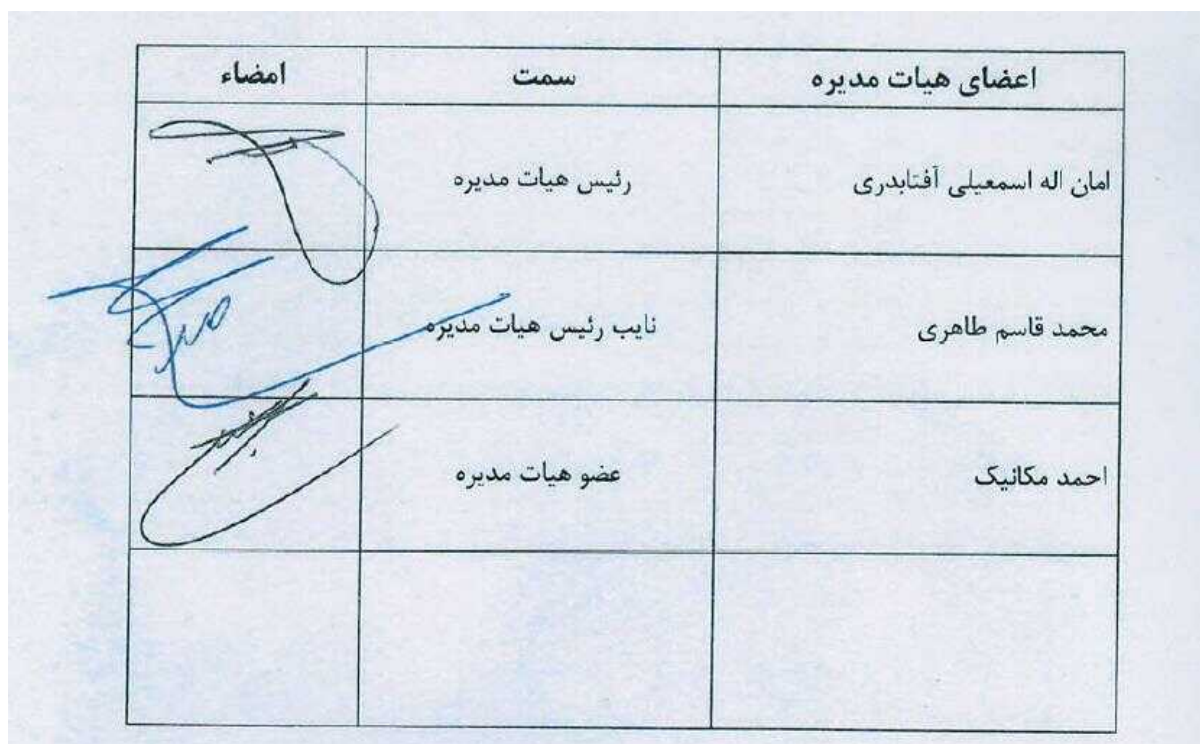 اعضای هیات مدیره سمت امضاء
امان اله اسمعیلی آفتابدری رئیس هیات مدیره
محمد قاسم طاهری نایب رئیس هیات مدیره
احمد مکانیک عضو هیات مدیره